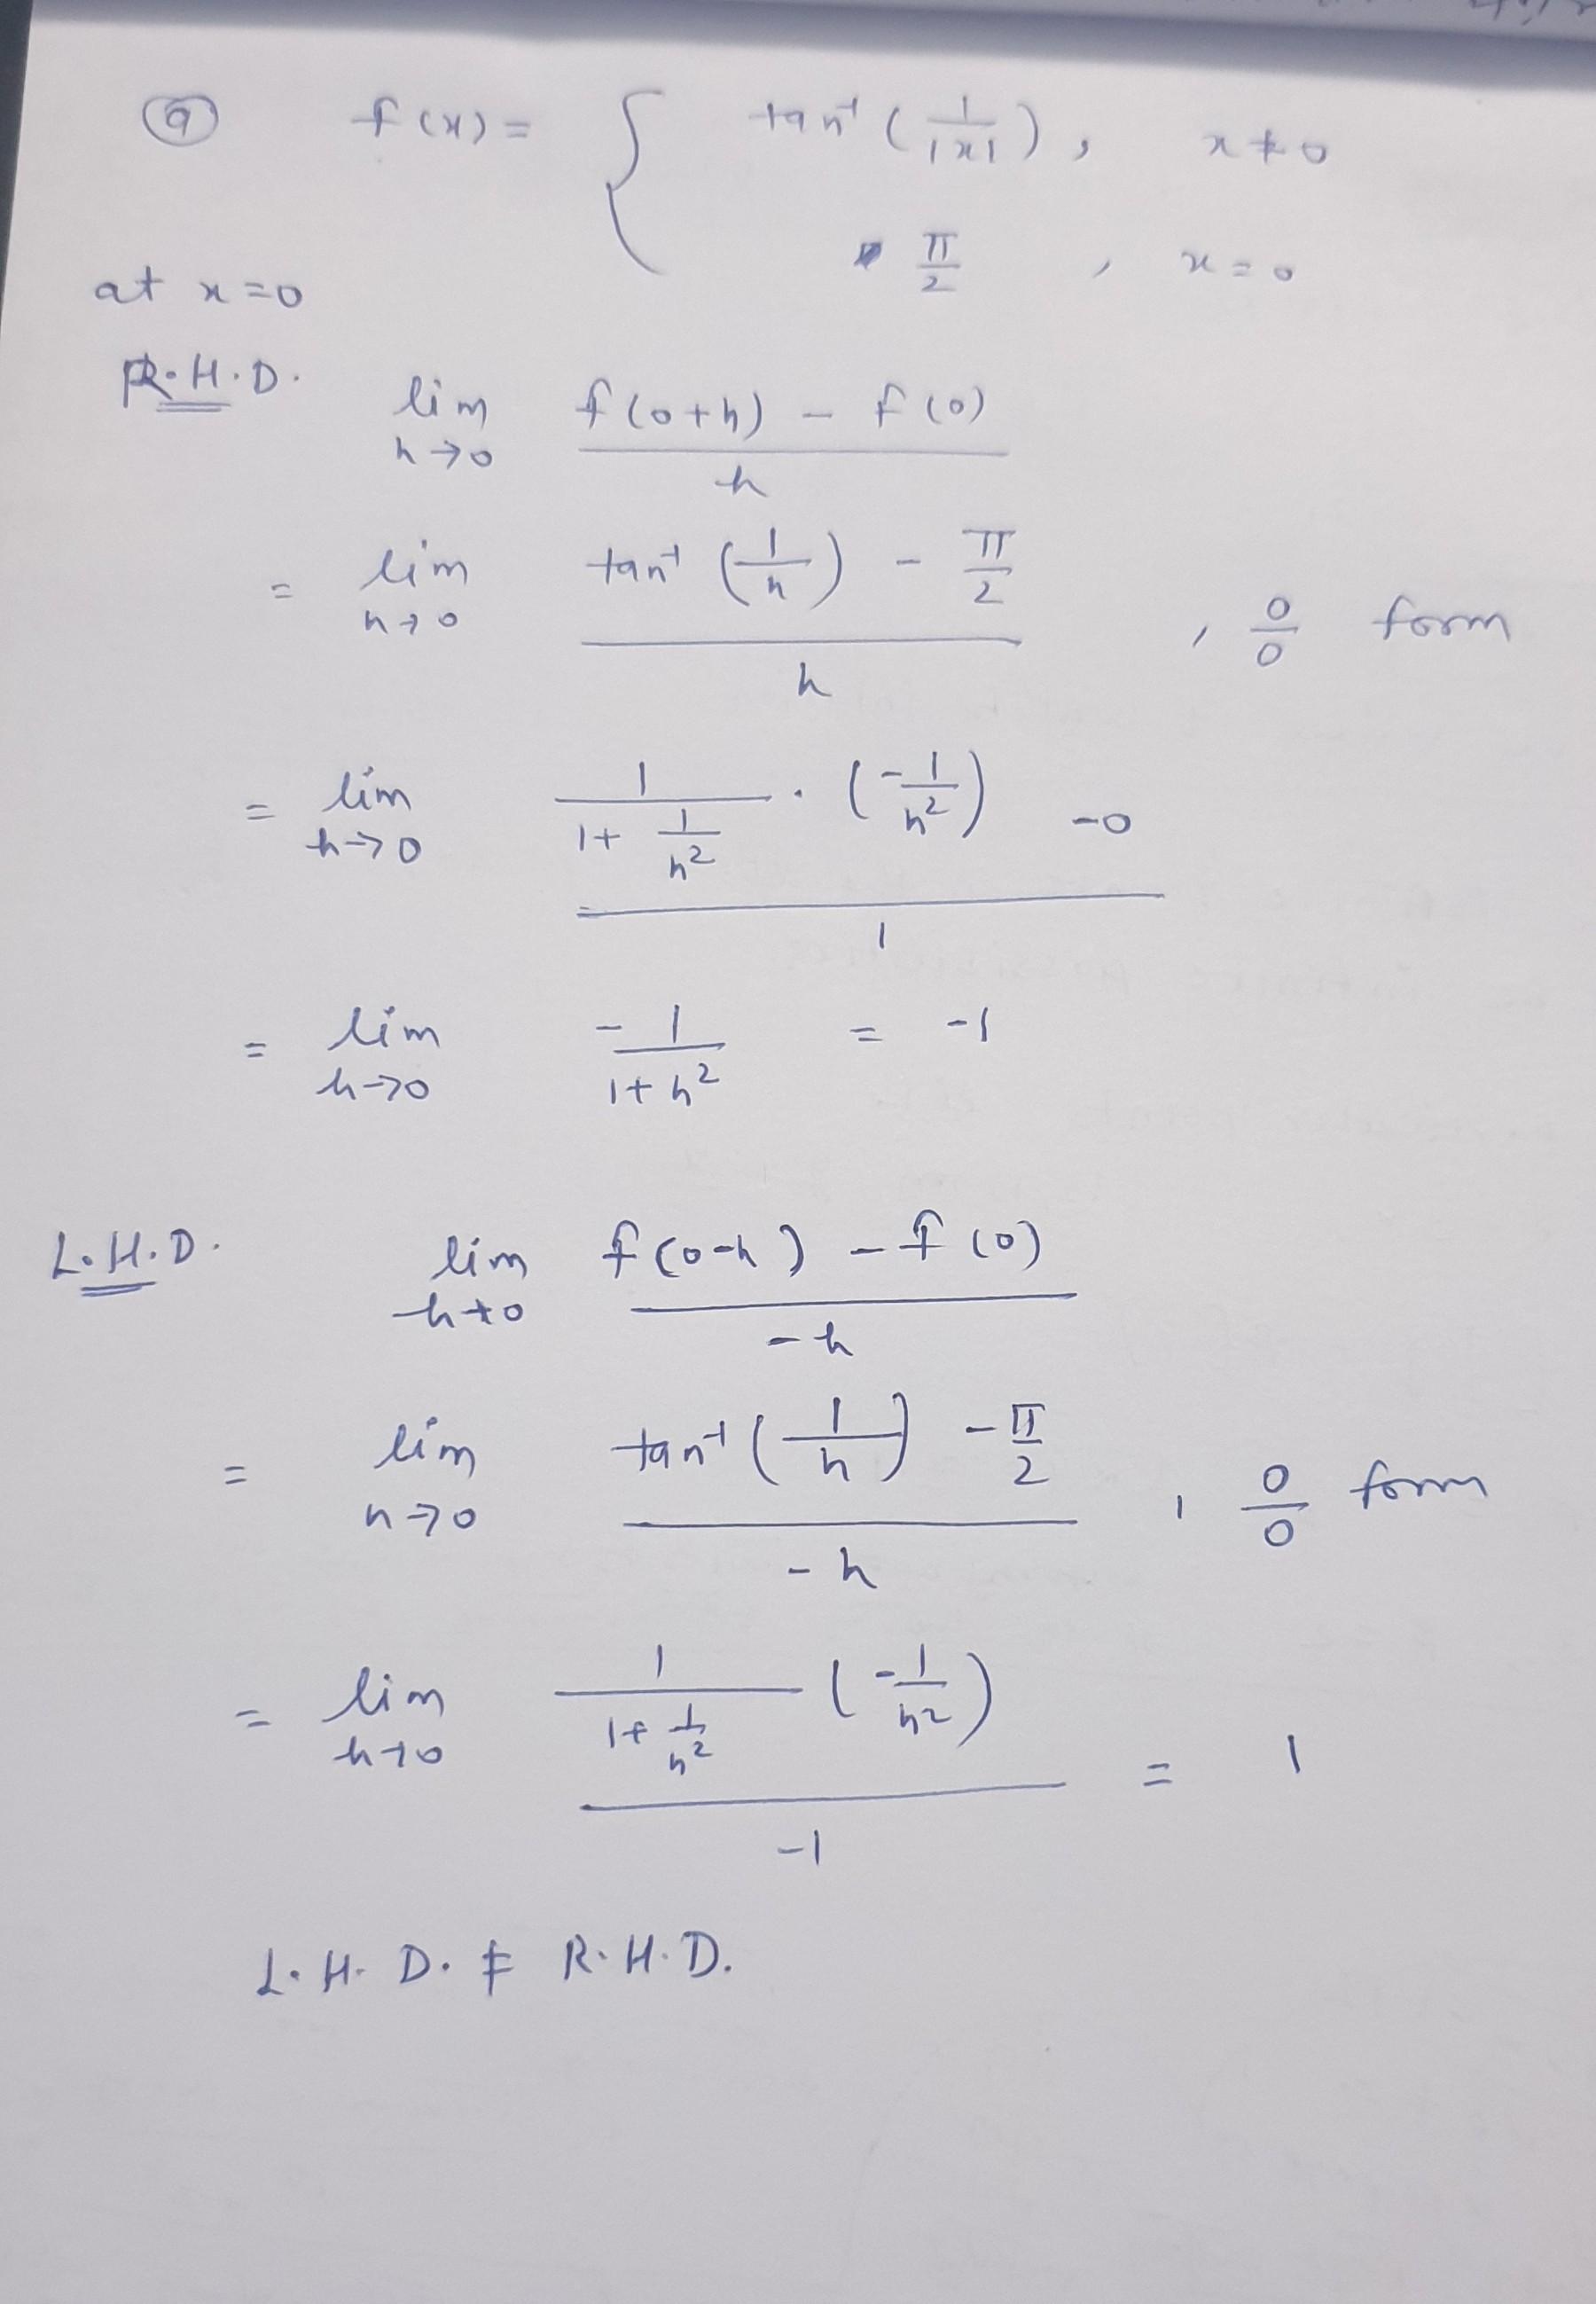 (9) f(x) = { tan⁻¹(1/|x|), x≠0
π/2 , x=0
at x=0
R.H.D. lim h→0 (f(0+h) - f(0))/h
= lim h→0 (tan⁻¹(1/h) - π/2)/h , 0/0 form
= lim h→0 (1/(1+1/h²) · (-1/h²) -0)/1
= lim h→0 -1/(1+h²) = -1
L.H.D. lim h→0 (f(0-h) - f(0))/-h
= lim h→0 (tan⁻¹(1/h) - π/2)/-h , 0/0 form
= lim h→0 (1/(1+1/h²) (-1/h²))/-1 = 1
L.H.D. ≠ R.H.D.